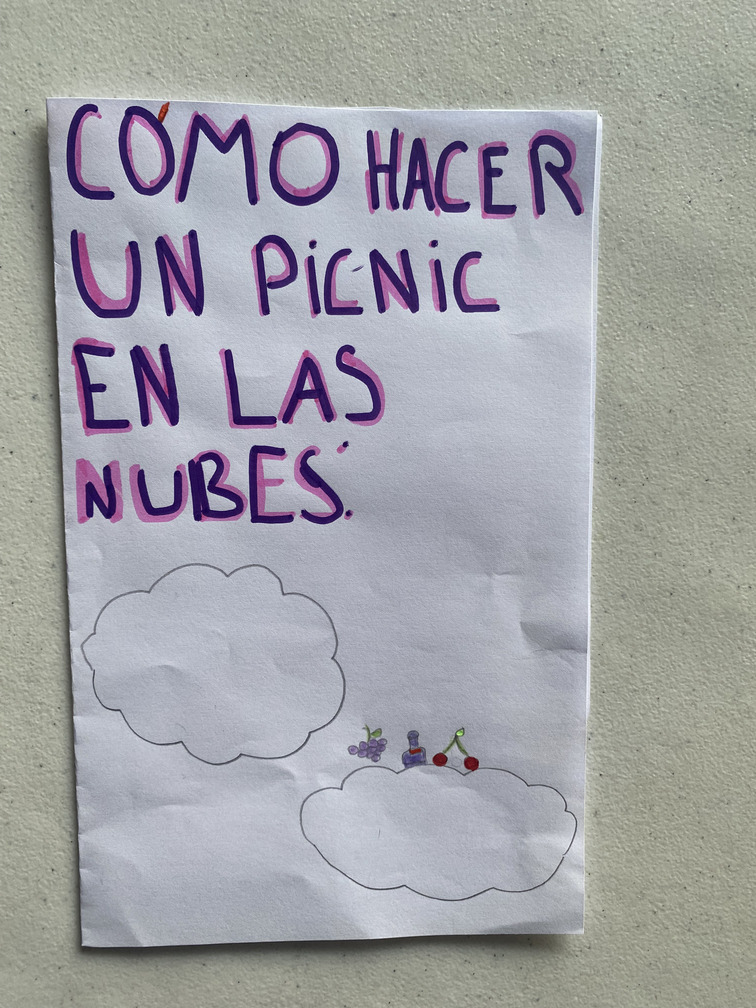 CÓMO HACER
UN PiCNiC
EN LAS
NUBES.